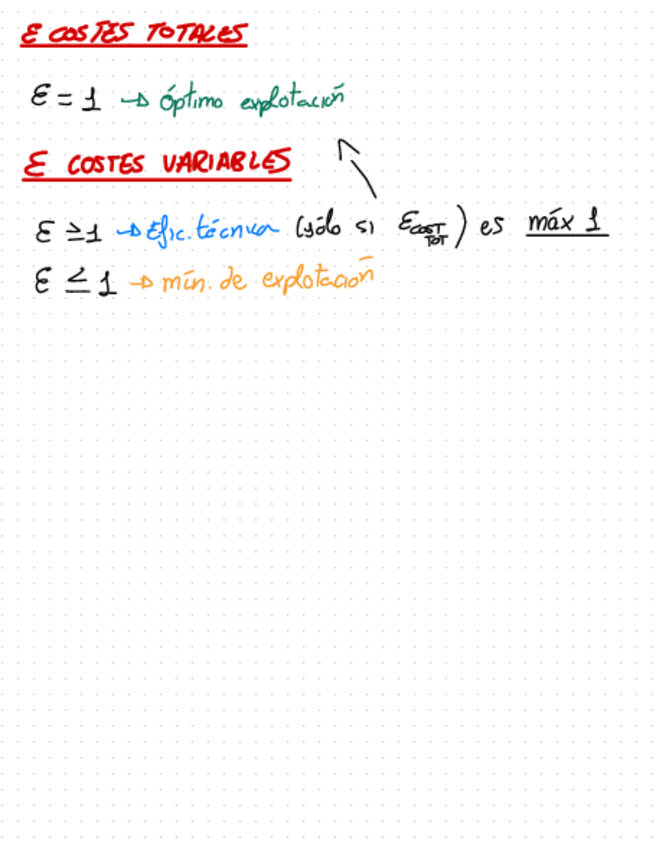 Ɛ COSTES TOTALES
Ɛ = 1 → óptimo explotación
Ɛ COSTES VARIABLES
Ɛ ≥ 1 → Efic. técnica (sólo si Ɛ COST TOT) es máx 1
Ɛ ≤ 1 → mín. de explotación